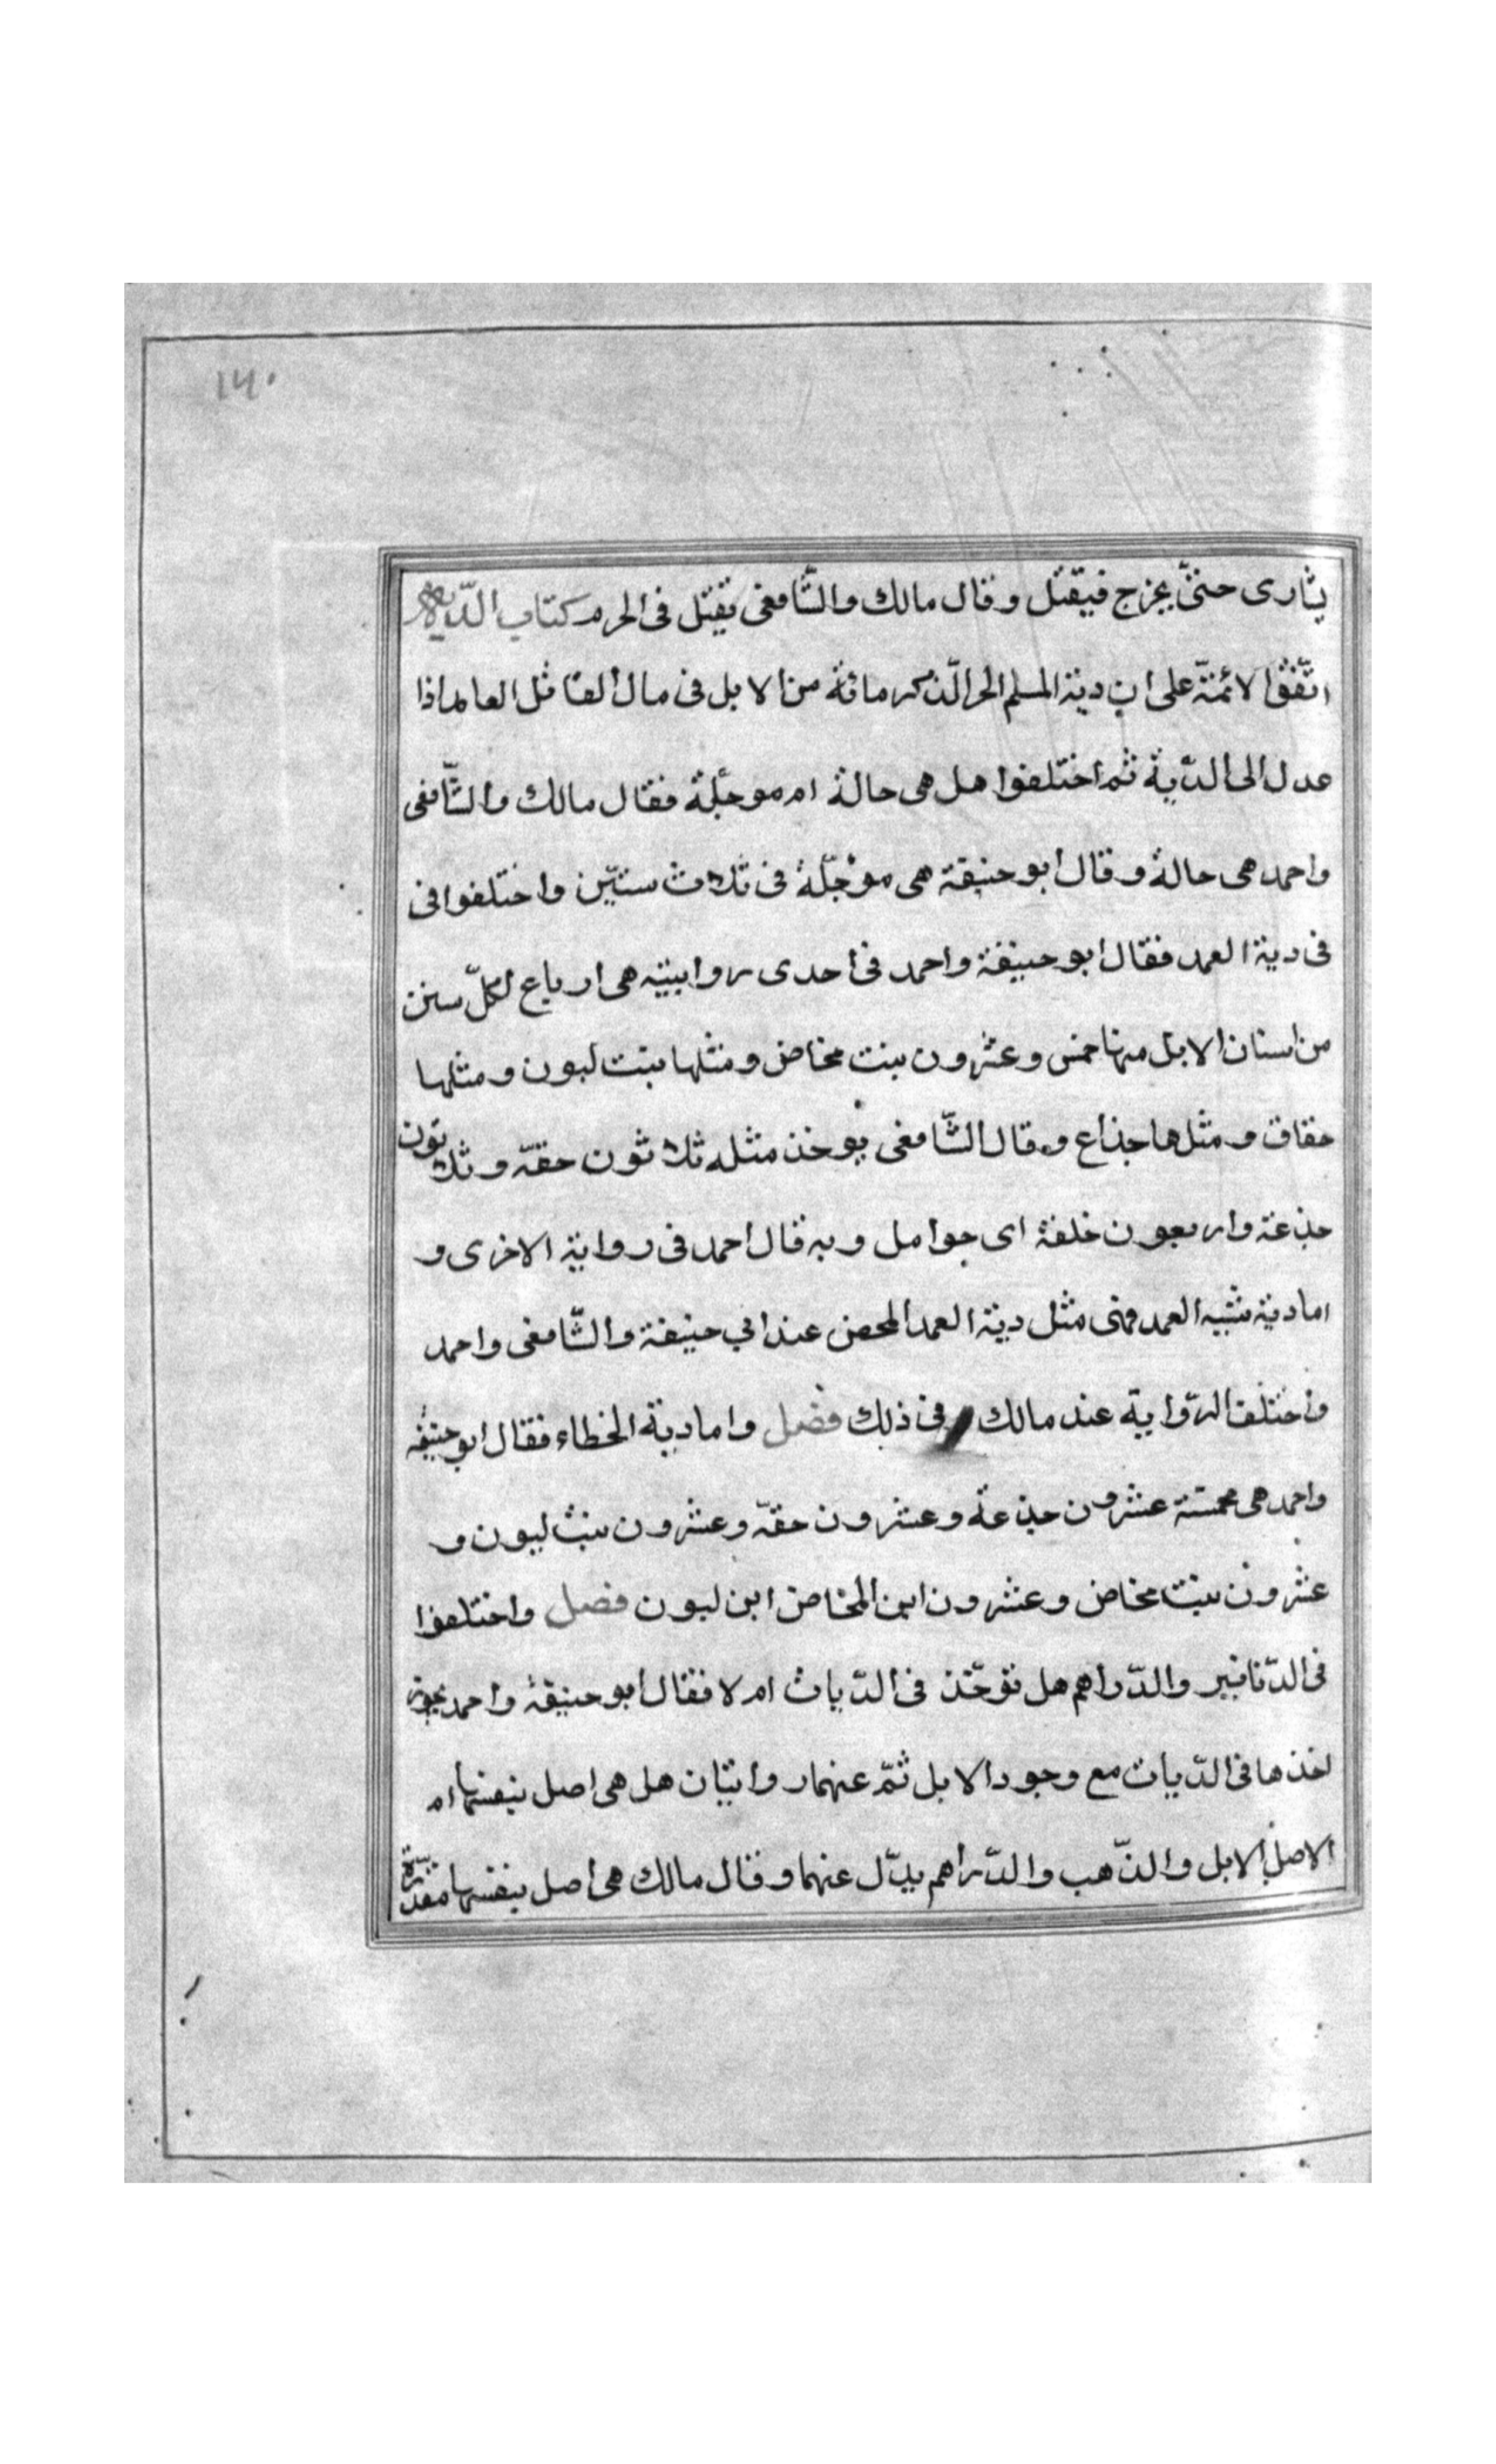 ١٦٠
يشارى حتىّ يخرج فيقتل وقال مالك والشّافعى يقتل فى الحرم كتاب الدّية
اتّفق الائمّة على ان دية المسلم الحر الذّكر مائة من الابل فى مال القاتل العامد اذا
عدل الى الدّية ثم اختلفوا هل هى حالة ام موجّلة فقال مالك والشّافعى
واحمد هى حالة وقال ابو حنيفة هى موجّلة فى ثلاث سنيّن واختلفوا فى
فى دية العمد فقال ابو حنيفة واحمد فى احدى روايتيه هى ارباع لكلّ سنن
من اسنان الابل منها خمس وعشرون بنت مخاض ومثلها بنت لبون ومثلها
حقاق ومثلها جذاع وقال الشّافعى يوخذ مثله ثلاثون حقّه وثلاثون
جذعة واربعون خلفة اى حوامل وبه قال احمد فى رواية الاخرى و
اما دية شبيه العمد فهى مثل دية العمد المحض عند ابي حنيفة والشّافعى واحمد
واختلف الرّواية عند مالك فى ذلك فصل واما دية الخطاء فقال ابو حنيفه
واحمد هى مخمسة عشرون جذعة وعشرون حقّه وعشرون بنت لبون و
عشرون بنت مخاض وعشرون ابن المخاض ابن لبون فصل واختلفوا
فى الدّنانير والدّراهم هل توخّذ فى الدّيات ام لا فقال ابو حنيفة واحمد يجوز
اخذها فى الدّيات مع وجود الابل ثمّ عنهما روايتان هل هى اصل بنفسها ام
الاصل الابل والذّهب والدّراهم بدّل عنها وقال مالك هى اصل بنفسها مقدّرة